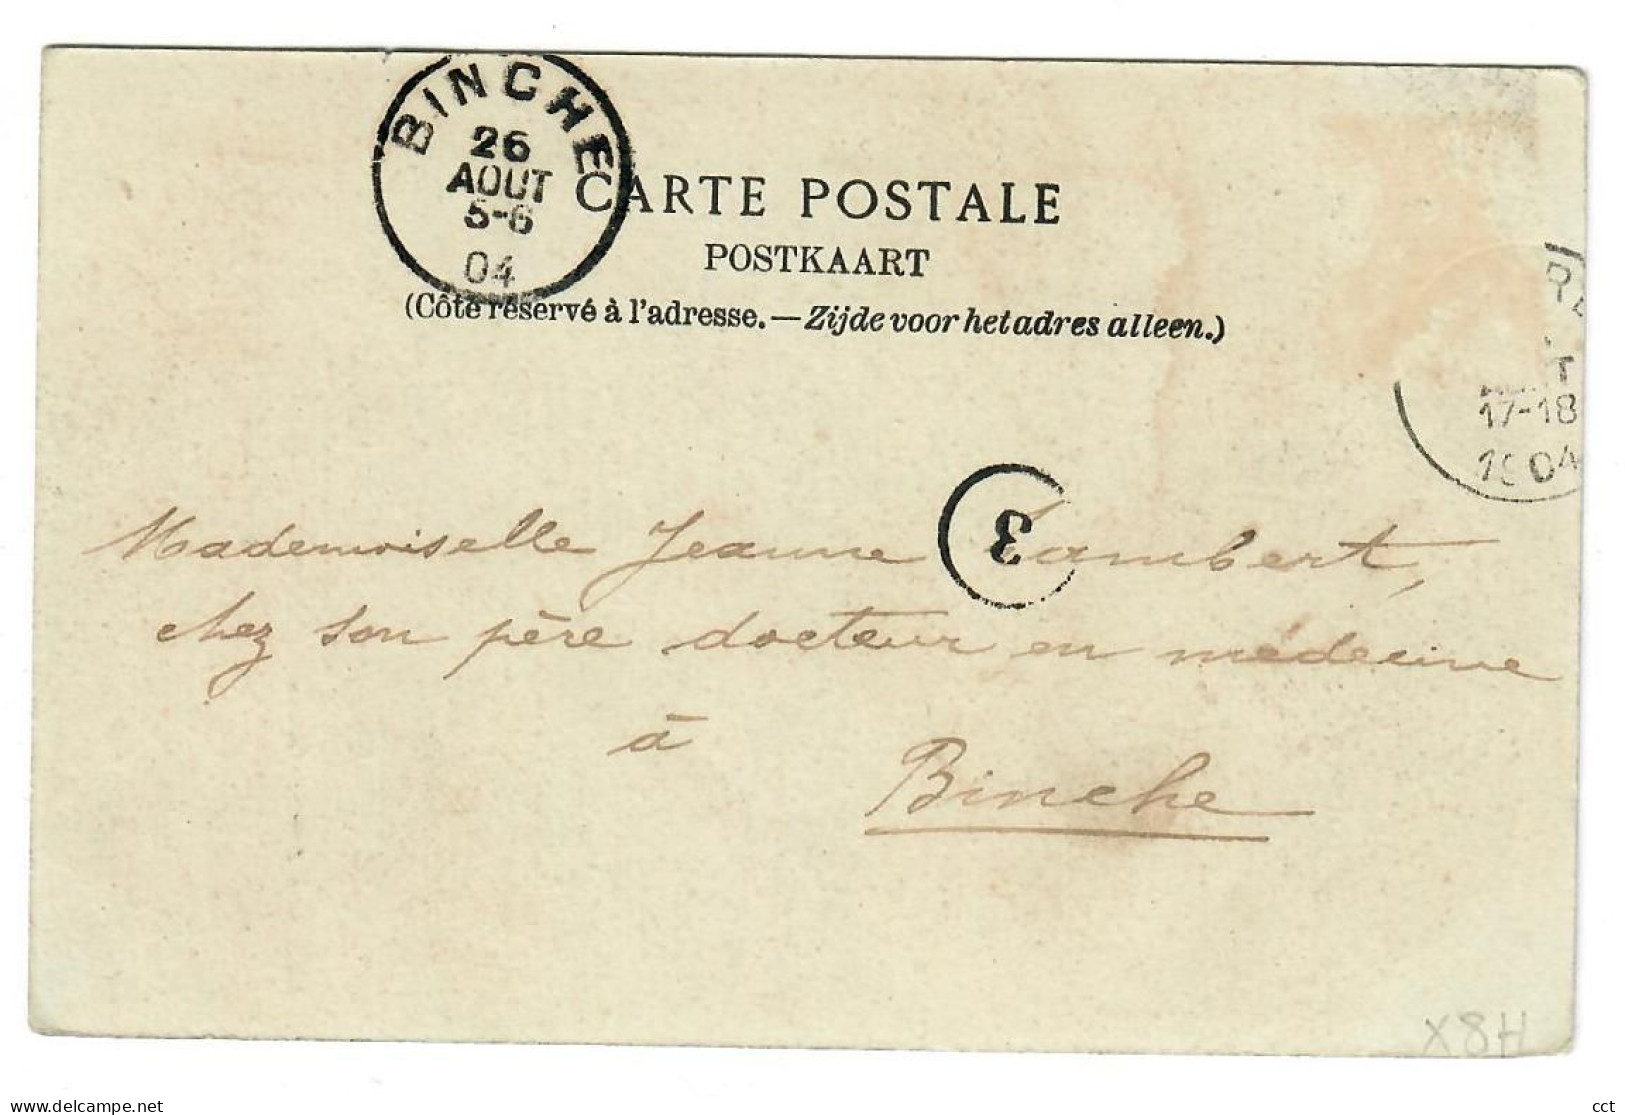 BINCHE
26
AOUT
5-6
04
CARTE POSTALE
POSTKAART
(Côté réservé à l'adresse. — Zijde voor het adres alleen.)
17-18
1904
3
Mademoiselle Jeanne Lambert,
chez son père docteur en médecine
à Binche
X8H
www.delcampe.net
cct